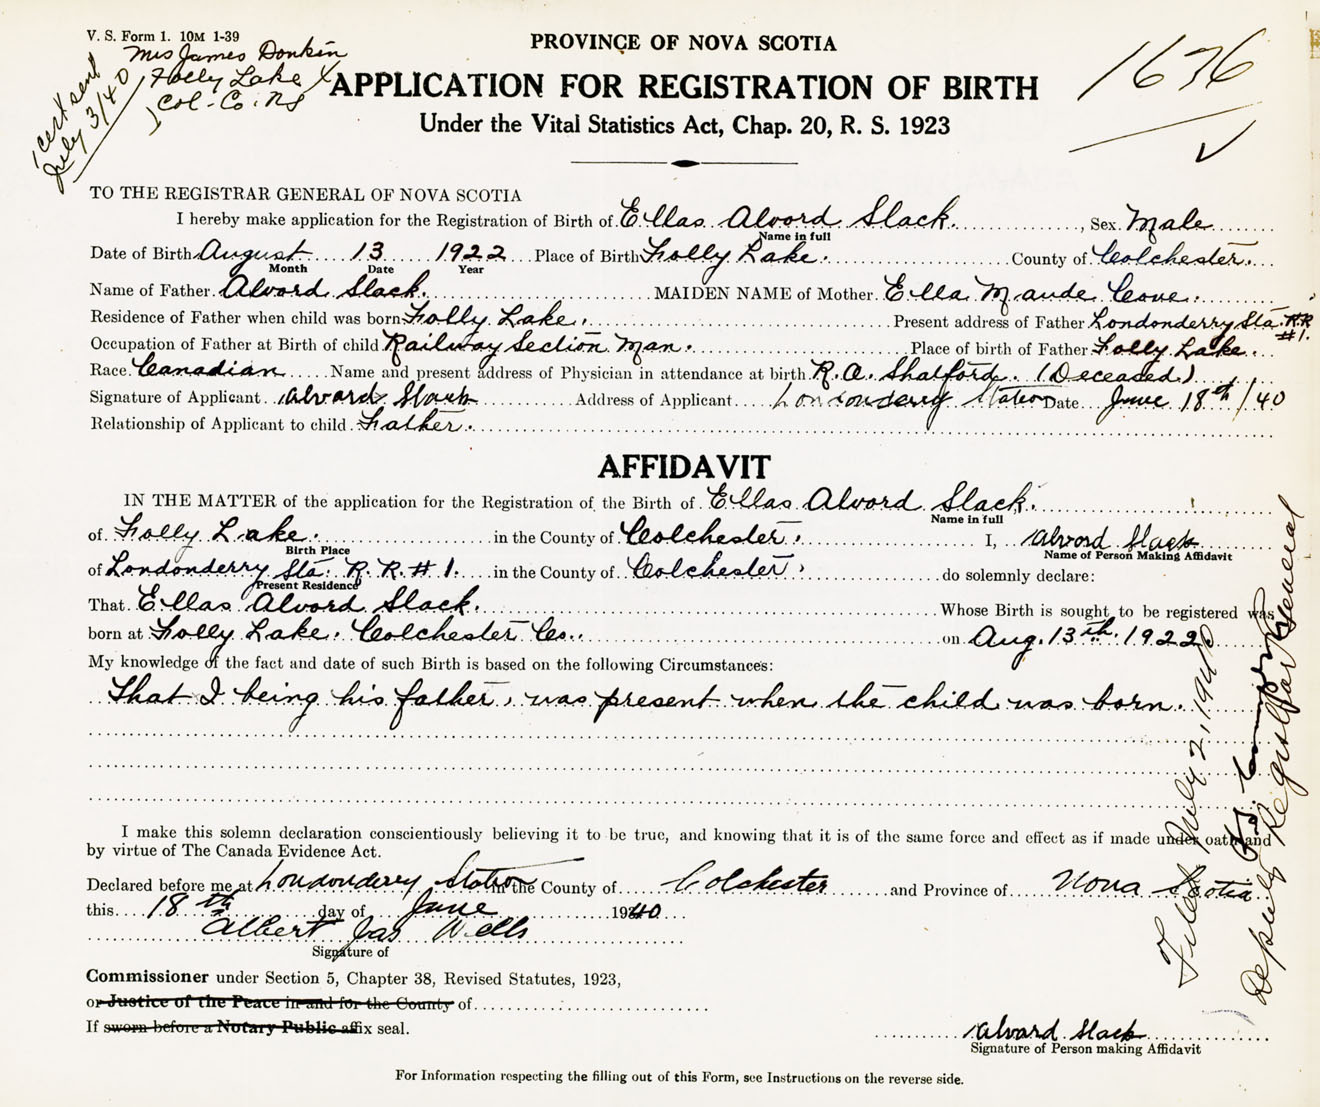 V. S. Form 1. 10M 1-39
Mrs James Donkin
Folly Lake
Col. Co. N S
cert sent
July 3/40
1636
PROVINCE OF NOVA SCOTIA
APPLICATION FOR REGISTRATION OF BIRTH
Under the Vital Statistics Act, Chap. 20, R. S. 1923
TO THE REGISTRAR GENERAL OF NOVA SCOTIA
I hereby make application for the Registration of Birth of Ellas Alvord Slack. , Sex Male
Name in full
Date of Birth August 13 1922 Place of Birth Folly Lake. County of Colchester.
Month Date Year
Name of Father Alvord Slack. MAIDEN NAME of Mother Ella Maude Cove.
Residence of Father when child was born Folly Lake. Present address of Father Londonderry Sta. R.R #1.
Occupation of Father at Birth of child Railway Section Man. Place of birth of Father Folly Lake.
Race Canadian Name and present address of Physician in attendance at birth R. A. Shatford. (Deceased.)
Signature of Applicant Alvard Slack Address of Applicant Londonderry Station Date June 18th/40
Relationship of Applicant to child Father.
AFFIDAVIT
IN THE MATTER of the application for the Registration of the Birth of Ellas Alvord Slack.
Name in full
of Folly Lake. in the County of Colchester. I, Alvord Slack
Birth Place Name of Person Making Affidavit
of Londonderry Sta. R. R. # 1. in the County of Colchester. do solemnly declare:
Present Residence
That Ellas Alvord Slack. Whose Birth is sought to be registered was
born at Folly Lake. Colchester Co. on Aug. 13th. 1922
My knowledge of the fact and date of such Birth is based on the following Circumstances:
That I being his father, was present when the child was born.
I make this solemn declaration conscientiously believing it to be true, and knowing that it is of the same force and effect as if made under oath and
by virtue of The Canada Evidence Act.
Declared before me at Londonderry Station in the County of Colchester and Province of Nova Scotia
this 18th day of June 1940
Albert Jas Wells
Signature of
Commissioner under Section 5, Chapter 38, Revised Statutes, 1923,
or Justice of the Peace in and for the County of
If sworn before a Notary Public affix seal.
Alvard Slack
Signature of Person making Affidavit
For Information respecting the filling out of this Form, see Instructions on the reverse side.
Filed July 2, 1940
Deputy Registrar General